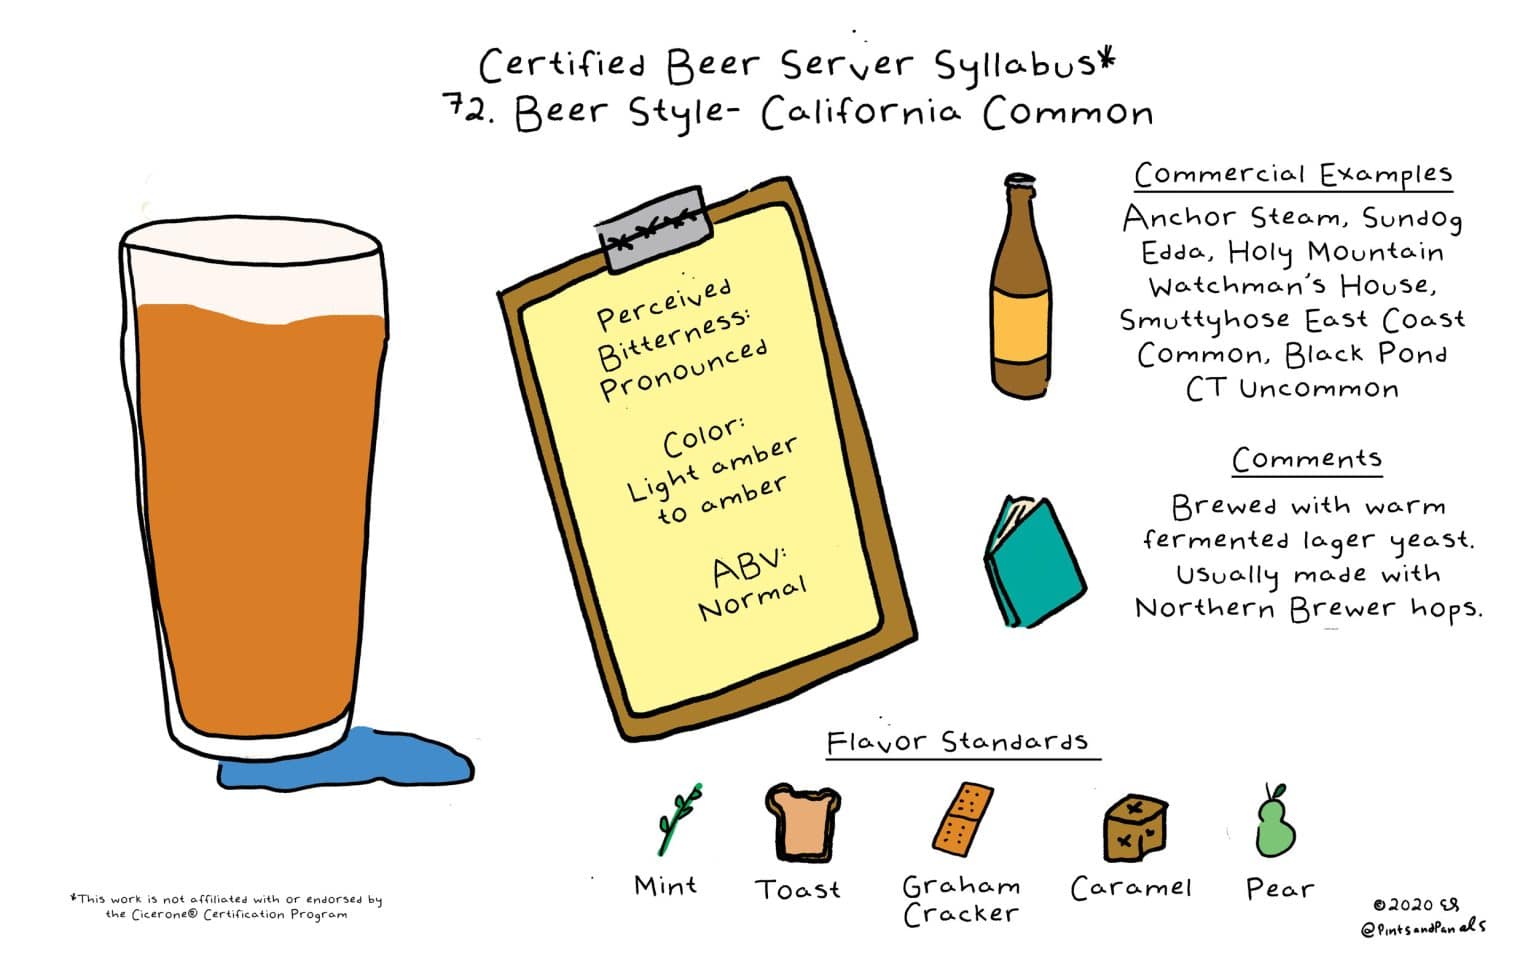 Certified Beer Server Syllabus*
72. Beer Style- California Common
Perceived
Bitterness:
Pronounced
Color:
Light amber
to amber
ABV:
Normal
Commercial Examples
Anchor Steam, Sundog
Edda, Holy Mountain
Watchman's House,
Smuttyhose East Coast
Common, Black Pond
CT Uncommon
Comments
Brewed with warm
fermented lager yeast.
Usually made with
Northern Brewer hops.
Flavor Standards
Mint
Toast
Graham
Cracker
Caramel
Pear
*This work is not affiliated with or endorsed by
the Cicerone® Certification Program
©2020
@PintsandPanels